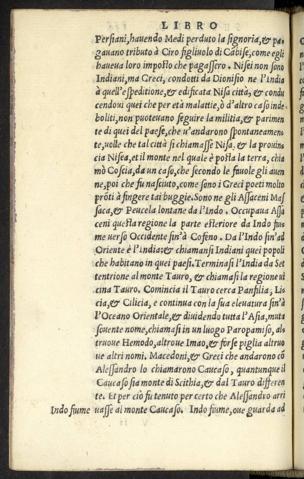 LIBRO
Persiani, hauendo Medi perduto la signoria, & pa
gauano tributo à Ciro figliuolo di Cãbise, come egli
haueua loro imposto che pagassero. Nisei non sono
Indiani, ma Greci, condotti da Dionisio ne l'India
à quell'espeditione, & edificata Nisa città, & condu
cendoui quei che per età malattie, ò d'altro caso inde
boliti, non poteuano seguire la militia, & parimen
te di quei del paese, che u'andarono spontaneamen
te, uolle che tal città si chiamasse Nisa, & la prouin
cia Nisea, et il monte nel quale è posta la terra, chia
mò Coscia, da un caso, che secondo le fauole gli auen
ne, poi che fu nasciuto, come sono i Greci poeti molto
prõti à fingere tai buggie. Sono ne gli Assaceni Mas
saca, & Peucela lontane da l'Indo. Occupaua Assa
ceni questa regione la parte esteriore da Indo fiu
me uerso Occidente fin'à Cofeno. Da l'Indo fin'ad
Oriente è l'India; & chiamansi Indiani quei popoli
che habitano in quei paesi. Terminasi l'India da Set
tentrione al monte Tauro, & chiamasi la regione ui
cina Tauro. Comincia il Tauro cerca Panfilia, Li
cia, & Cilicia, e continua con la sua eleuatura sin'à
l'Oceano Orientale, & diuidendo tutta l'Asia, muta
souente nome, chiamasi in un luogo Paropamiso, al
truoue Hemodo, altroue Imao, & forse piglia altruo
ue altri nomi. Macedoni, & Greci che andarono cõ
Alessandro lo chiamarono Caucaso, quantunque il
Caucaso sia monte di Scithia, & dal Tauro differen
te. Et per ciò fu tenuto per certo che Alessandro arri
Indo fiume uasse al monte Caucaso. Indo fiume, oue guarda ad